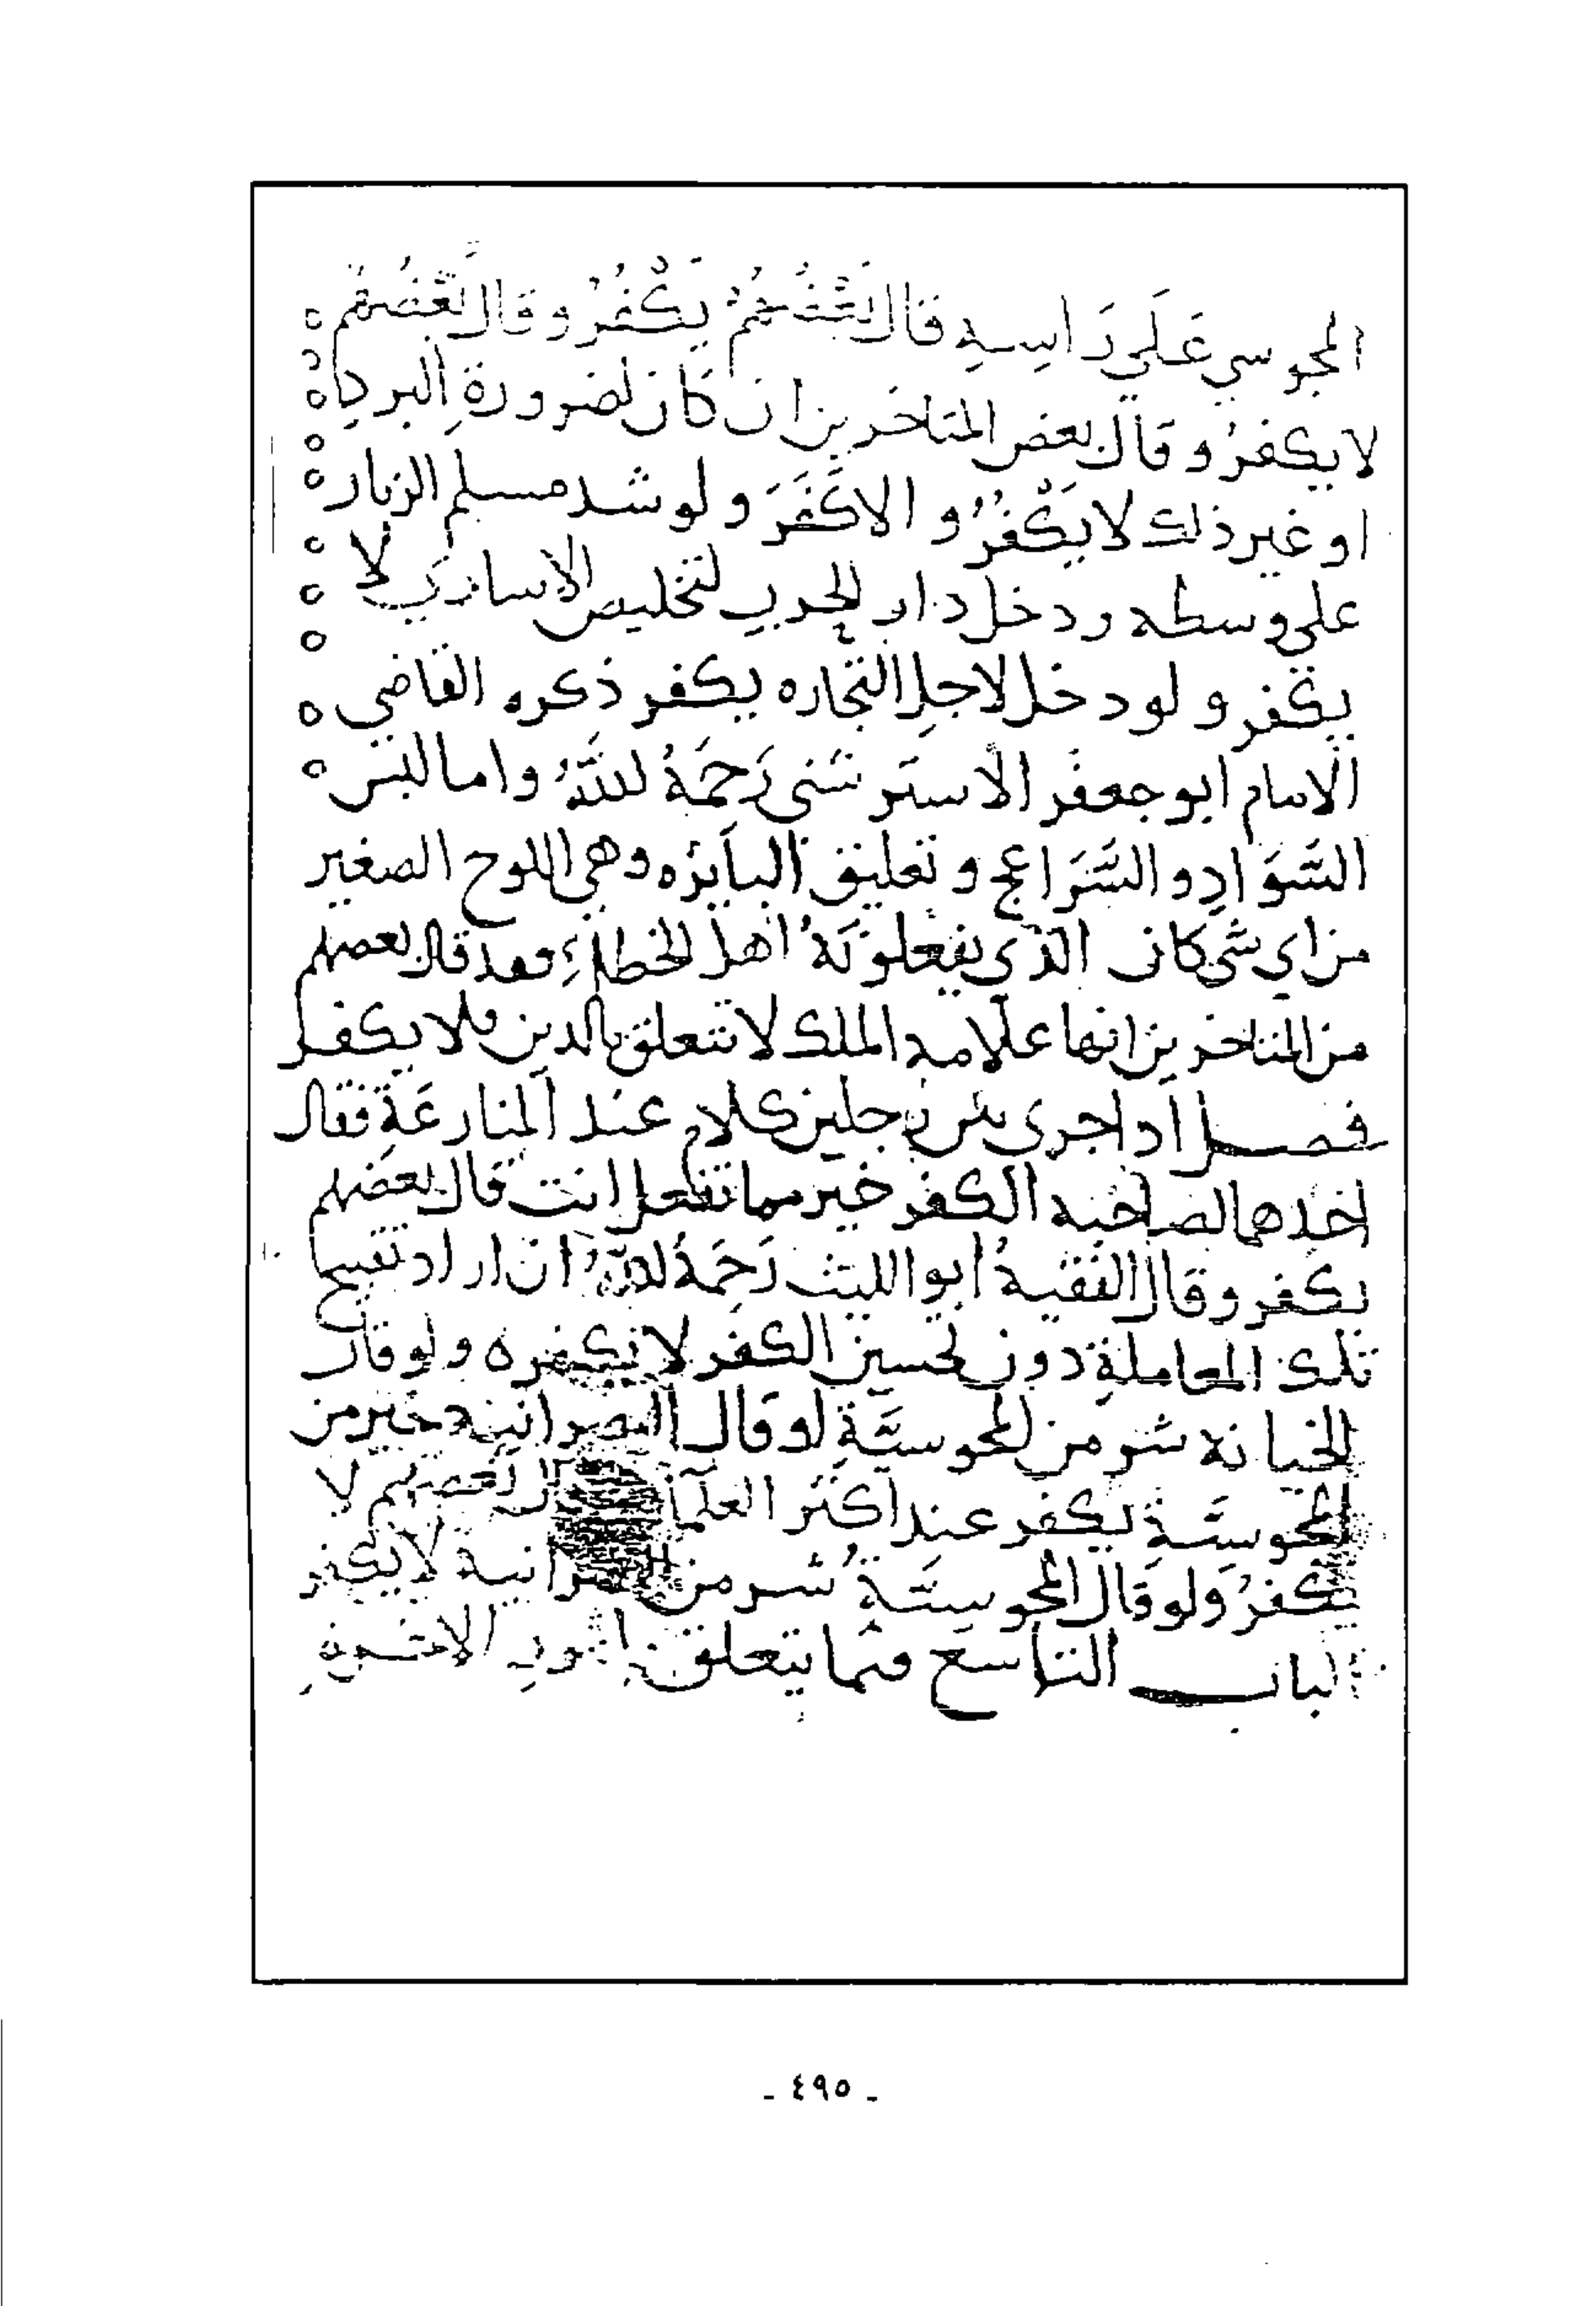 المجوسي عَلَي رَاسِهِ قال بَعْضُهُمْ يَكْفُرُ وقال بَعْضُهُمْ ه
لا يكفرُ وقال بعض المتاخرين ان كان لضرورة البرد ه
او غير ذلك لا يَكْفُرُ و الا كَفَرَ ولو شد مسلم الزنار ه
على وسطه ودخل دار الحرب لتخليص الاسارى لا ه
يكفر ولو دخل لاجل التجاره يكفر ذكره القاضي ه
الامام ابو جعفر الاستروشنى رَحِمَهُ اللَّهُ واما لبس ه
السَّوَادِ و السَّرَاغج و تعليق البايزه وهى اللوح الصغير
من اي شي كان الذي يفعلونَهُ اهل الخطاء فقد قال بعضهم
من المتاخرين انها علامه الملك لا تتعلق بالدين فلا يكفر
فصل اذا جرى بين رجلين كلام عند المنازعَةِ فقال
احدهما لصاحبه الكفر خير مما تفعل انت قال بعضهم
يكفر وقال الفقيهُ ابو الليث رَحِمَهُ اللَّهُ ان اراد تقبيح
تلك المعاملةِ دون تحسين الكفر لا يكفر ه ولو قال
الخيانه شر من المجوسيَّةِ لو قال النصرانيه خير من
المجوسيَّةِ يكفر عند اكثر العلمآ قال بعضهم لا
يكفرُ ولو قال المجوسيَّةُ شر من النصرانية لا يكفر
الباب التاسع فيما يتعلق بامور الاخرة
- ٤٩٥ -